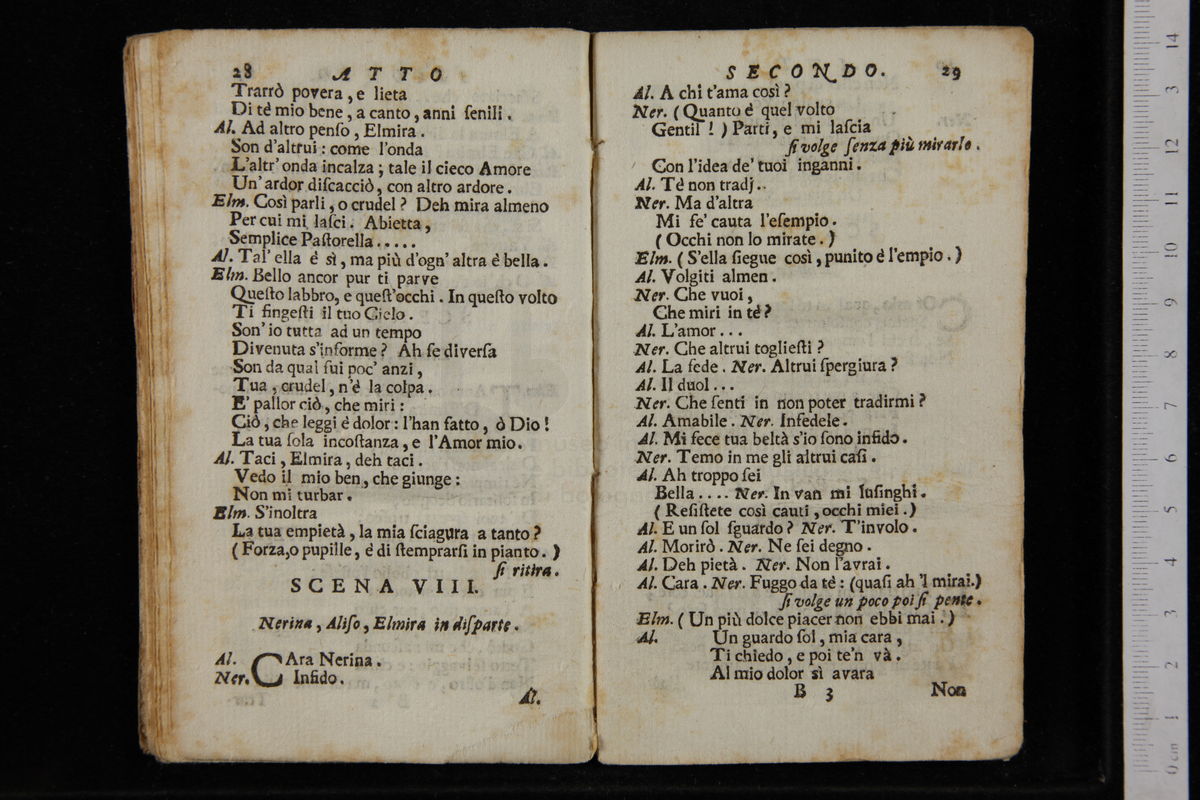 28 ATTO
Trarrò povera, e lieta
Di tè mio bene, a canto, anni ſenili.
Al. Ad altro penſo, Elmira.
Son d'altrui: come l'onda
L'altr' onda incalza; tale il cieco Amore
Un' ardor diſcacciò, con altro ardore.
Elm. Così parli, o crudel? Deh mira almeno
Per cui mi laſci. Abietta,
Semplice Paſtorella.....
Al. Tal' ella è sì, ma più d'ogn' altra è bella.
Elm. Bello ancor pur ti parve
Queſto labbro, e queſt'occhi. In queſto volto
Ti fingeſti il tuo Cielo.
Son' io tutta ad un tempo
Divenuta s'informe? Ah ſe diverſa
Son da qual fui poc' anzi,
Tua, crudel, n'è la colpa.
E' pallor ciò, che miri:
Ciò, che leggi è dolor: l'han fatto, ò Dio!
La tua ſola incoſtanza, e l'Amor mio.
Al. Taci, Elmira, deh taci.
Vedo il mio ben, che giunge:
Non mi turbar.
Elm. S'inoltra
La tua empietà, la mia ſciagura a tanto?
(Forza, o pupille, è di ſtemprarſi in pianto.)
ſi ritira.
SCENA VIII.
Nerina, Aliſo, Elmira in diſparte.
Al. CAra Nerina.
Ner. Infido.
Al.
SECONDO. 29
Al. A chi t'ama così?
Ner. (Quanto è quel volto
Gentil!) Parti, e mi laſcia
ſi volge ſenza più mirarlo.
Con l'idea de' tuoi inganni.
Al. Tè non tradj..
Ner. Ma d'altra
Mi fe' cauta l'eſempio.
(Occhi non lo mirate.)
Elm. (S'ella ſiegue così, punito è l'empio.)
Al. Volgiti almen.
Ner. Che vuoi,
Che miri in tè?
Al. L'amor...
Ner. Che altrui toglieſti?
Al. La fede. Ner. Altrui ſpergiura?
Al. Il duol...
Ner. Che ſenti in non poter tradirmi?
Al. Amabile. Ner. Infedele.
Al. Mi fece tua beltà s'io ſono infido.
Ner. Temo in me gli altrui caſi.
Al. Ah troppo ſei
Bella.... Ner. In van mi luſinghi.
(Reſiſtete così cauti, occhi miei.)
Al. E un ſol ſguardo? Ner. T'involo.
Al. Morirò. Ner. Ne ſei degno.
Al. Deh pietà. Ner. Non l'avrai.
Al. Cara. Ner. Fuggo da tè: (quaſi ah 'l mirai.)
ſi volge un poco poi ſi pente.
Elm. (Un più dolce piacer non ebbi mai.)
Al. Un guardo ſol, mia cara,
Ti chiedo, e poi te'n và.
Al mio dolor sì avara
B 3 Non
0 cm 1 2 3 4 5 6 7 8 9 10 11 12 3 14